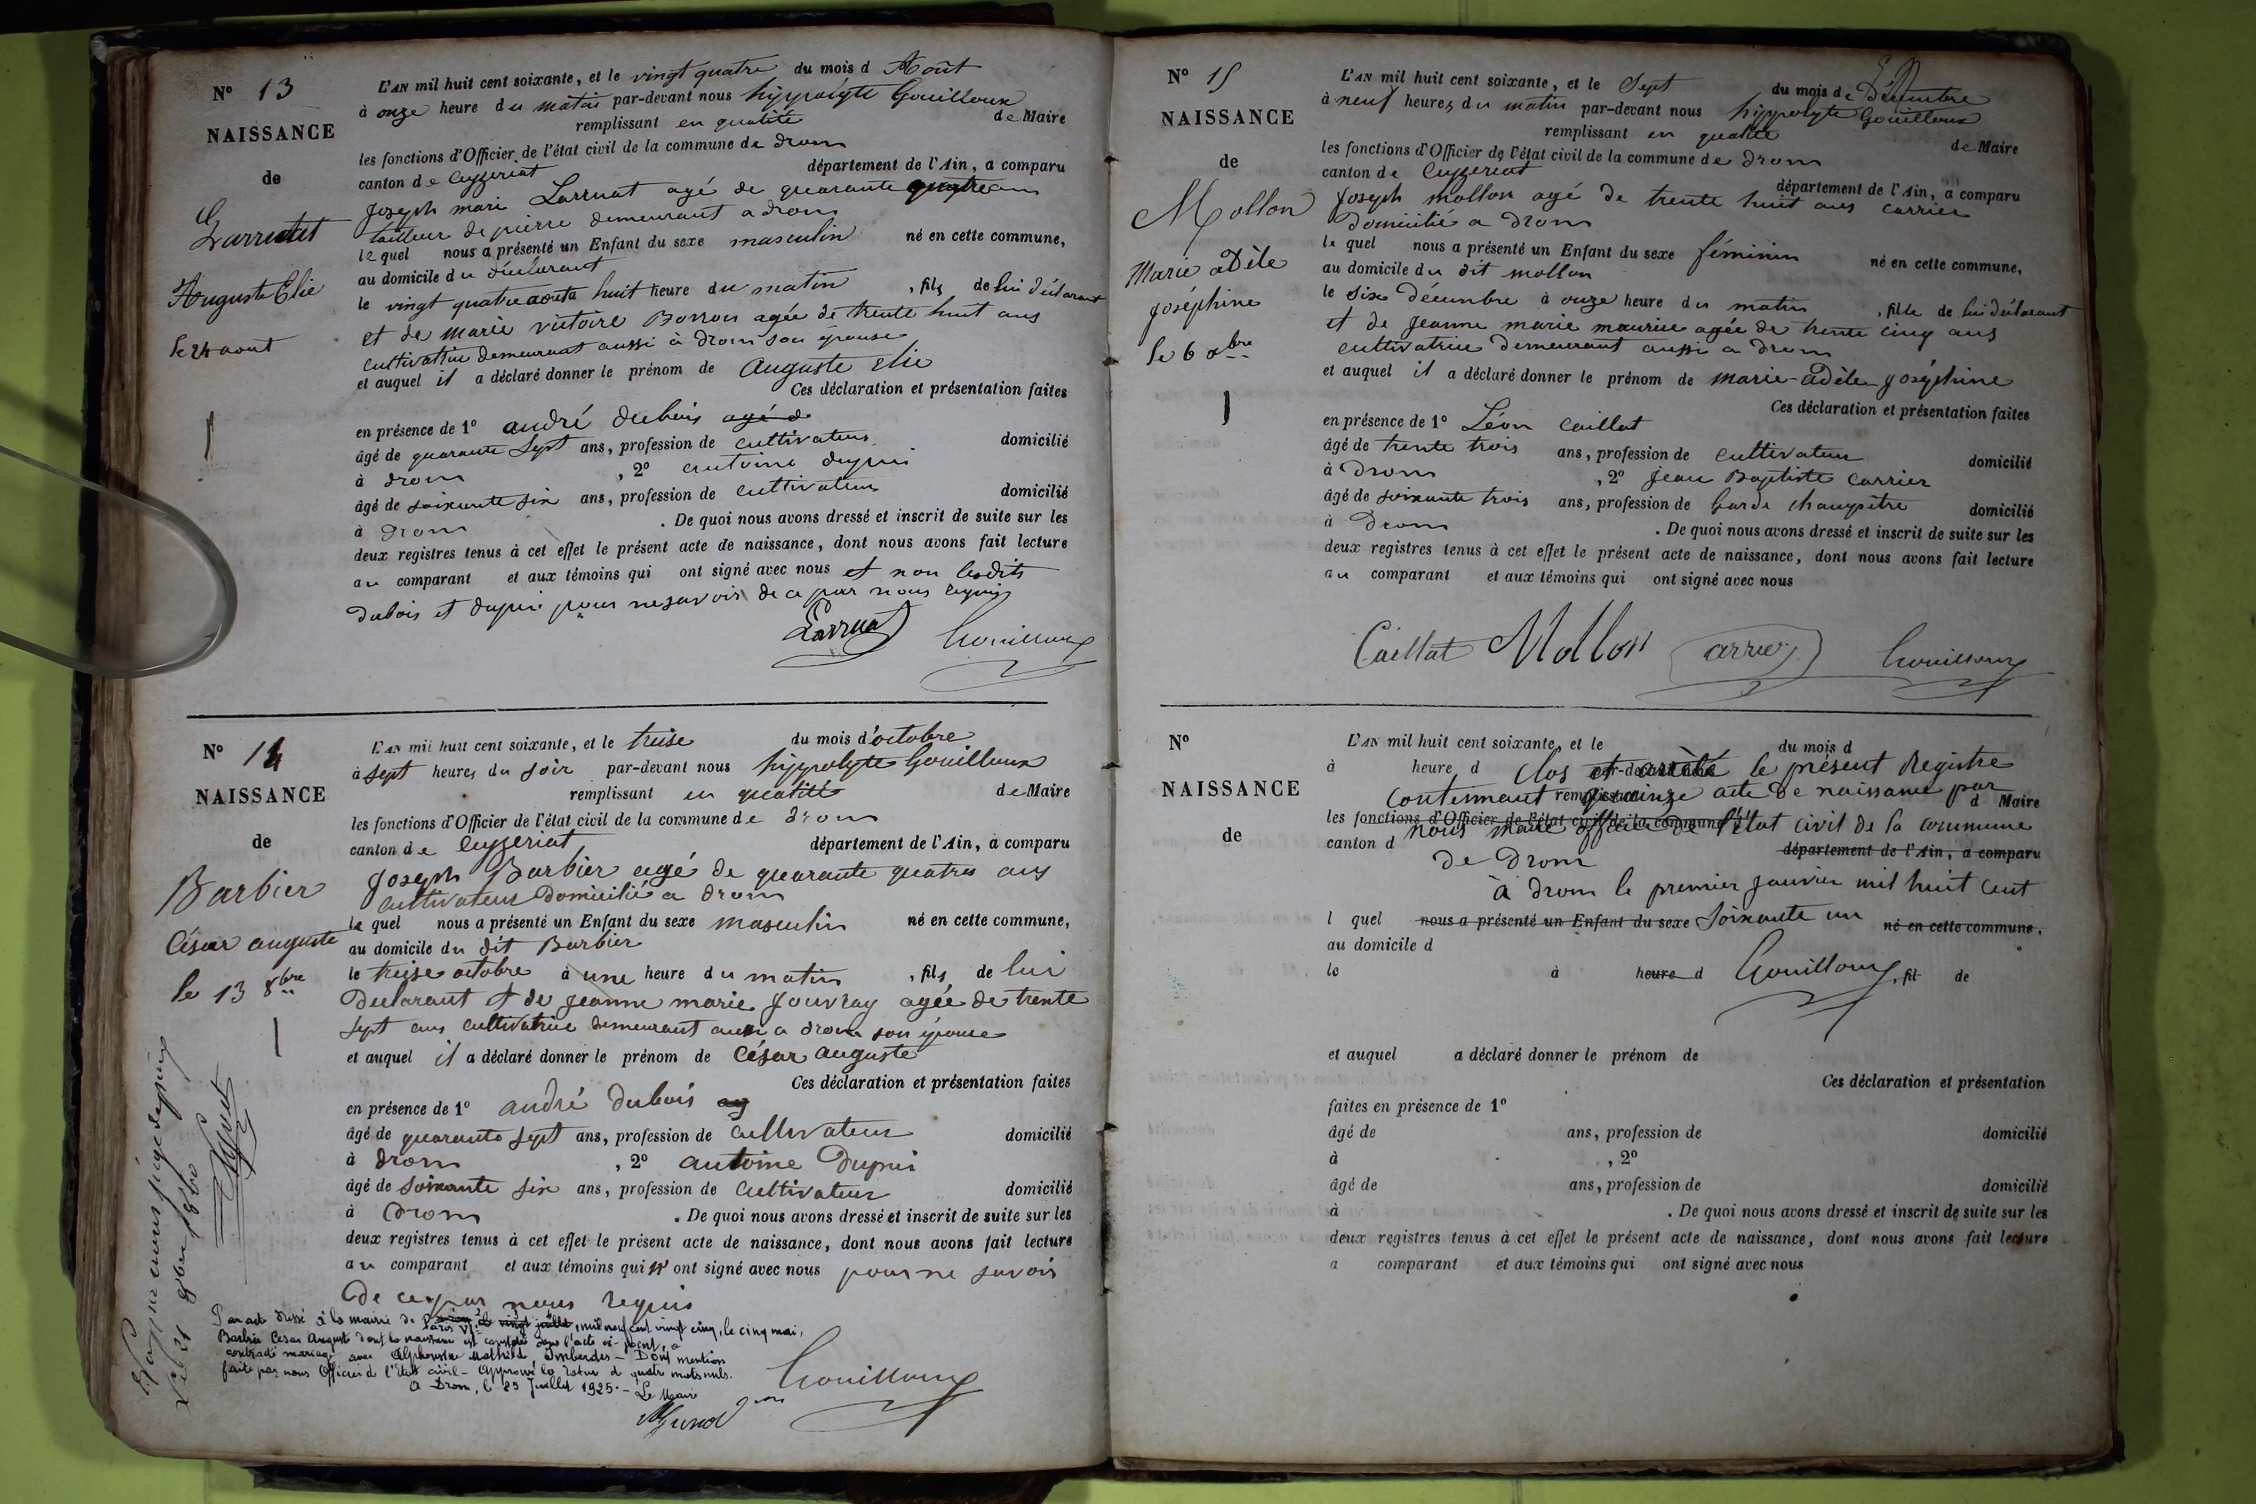 N° 13
NAISSANCE
de
Larruatet
Auguste Elie
le 24 aout
L'AN mil huit cent soixante, et le vingt quatre du mois d Août
à onze heure du matin par-devant nous hippolyte Gouilloux
remplissant en qualité de Maire
les fonctions d'Officier de l'état civil de la commune de drom
canton de Ceyzeriat département de l'Ain, a comparu
Joseph mari Larruat agé de quarante quatre ans
tailleur de pierre demeurant a drom
lequel nous a présenté un Enfant du sexe masculin né en cette commune,
au domicile du déclarant
le vingt quatre aout a huit heure du matin, fils de lui déclarant
et de marie victoire Borron agée de trente huit ans
cultivatrice demeurant aussi à drom son épouse
et auquel il a déclaré donner le prénom de Auguste Elie
Ces déclaration et présentation faites
en présence de 1° andré dubois agé d
âgé de quarante sept ans, profession de cultivateur domicilié
à drom, 2° antoine dupui
âgé de soixante six ans, profession de cultivateur domicilié
à drom. De quoi nous avons dressé et inscrit de suite sur les
deux registres tenus à cet effet le présent acte de naissance, dont nous avons fait lecture
au comparant et aux témoins qui ont signé avec nous et non lesdits
dubois et dupui pour ne savoir de ce par nous requis
Larruat Gouilloux
N° 14
NAISSANCE
de
Barbier
César auguste
le 13 8bre
L'AN mil huit cent soixante, et le treise du mois d'octobre
à sept heures du soir par-devant nous hippolyte Gouilloux
remplissant en qualité de Maire
les fonctions d'Officier de l'état civil de la commune de drom
canton de Ceyzeriat département de l'Ain, a comparu
Joseph Barbier agé de quarante quatres ans
cultivateur domicilié a drom
lequel nous a présenté un Enfant du sexe masculin né en cette commune,
au domicile du dit Barbier
le treise octobre à une heure du matin, fils de lui
declarant et de jeanne marie Jouvray agée de trente
sept ans cultivatrice demeurant aussi a drom son épouse
et auquel il a déclaré donner le prénom de César auguste
Ces déclaration et présentation faites
en présence de 1° andré dubois ag
âgé de quarante sept ans, profession de cultivateur domicilié
à drom, 2° antoine Dupui
âgé de soixante six ans, profession de cultivateur domicilié
à drom. De quoi nous avons dressé et inscrit de suite sur les
deux registres tenus à cet effet le présent acte de naissance, dont nous avons fait lecture
au comparant et aux témoins qui n'ont signé avec nous pour ne savoir
de ce par nous requis
Par acte dressé à la mairie de Paris VIe le vingt juillet, mil neuf cent vingt cinq, le cinq mai,
Barbier César August dont la naissance est constatée dans l'acte ci-joint, a
contracté mariage avec Alphonsine Mathilde Imberdes - Dont mention
faite par nous Officier de l'Etat civil - Approuvé la rature de quatre mots nuls.
A Drom, le 25 Juillet 1925. - Le Maire
Gouilloux
N° 15
NAISSANCE
de
Mollon
Marie adèle
joséphine
le 6 xbre
L'AN mil huit cent soixante, et le Sept du mois de Décembre
à neuf heures du matin par-devant nous hippolyte Gouilloux
remplissant en qualité de Maire
les fonctions d'Officier de l'état civil de la commune de drom
canton de Ceyzeriat département de l'Ain, a comparu
Joseph mollon agé de trente huit ans carrier
domicilié a drom
lequel nous a présenté un Enfant du sexe féminin né en cette commune,
au domicile du dit mollon
le six décembre à onze heure du matin, fille de lui déclarant
et de jeanne marie maurice agée de trente cinq ans
cultivatrice demeurant aussi a drom
et auquel il a déclaré donner le prénom de marie-adèle-joséphine
Ces déclaration et présentation faites
en présence de 1° Léon Caillat
âgé de trente trois ans, profession de cultivateur domicilié
à drom, 2° Jean Baptiste Carrier
âgé de soixante trois ans, profession de Garde champêtre domicilié
à Drom. De quoi nous avons dressé et inscrit de suite sur les
deux registres tenus à cet effet le présent acte de naissance, dont nous avons fait lecture
au comparant et aux témoins qui ont signé avec nous
Caillat Mollon Carrier Gouilloux
N°
NAISSANCE
de
L'AN mil huit cent soixante, et le du mois d
à heure d par-devant nous
Clos et arrêté le présent Registre
remplissant d Maire
Contennant quinze acte de naissance par
les fonctions d'Officier de l'état civil de la commune d
nous maire officier de l'état civil de la commune
canton d département de l'Ain, a comparu
de Drom
à drom le premier janvier mil huit cent
l quel nous a présenté un Enfant du sexe soixante un né en cette commune,
au domicile d
le à heure d Gouilloux, fil de
et auquel a déclaré donner le prénom de
Ces déclaration et présentation
faites en présence de 1°
âgé de ans, profession de domicilié
à , 2°
âgé de ans, profession de domicilié
à . De quoi nous avons dressé et inscrit de suite sur les
deux registres tenus à cet effet le présent acte de naissance, dont nous avons fait lecture
a comparant et aux témoins qui ont signé avec nous